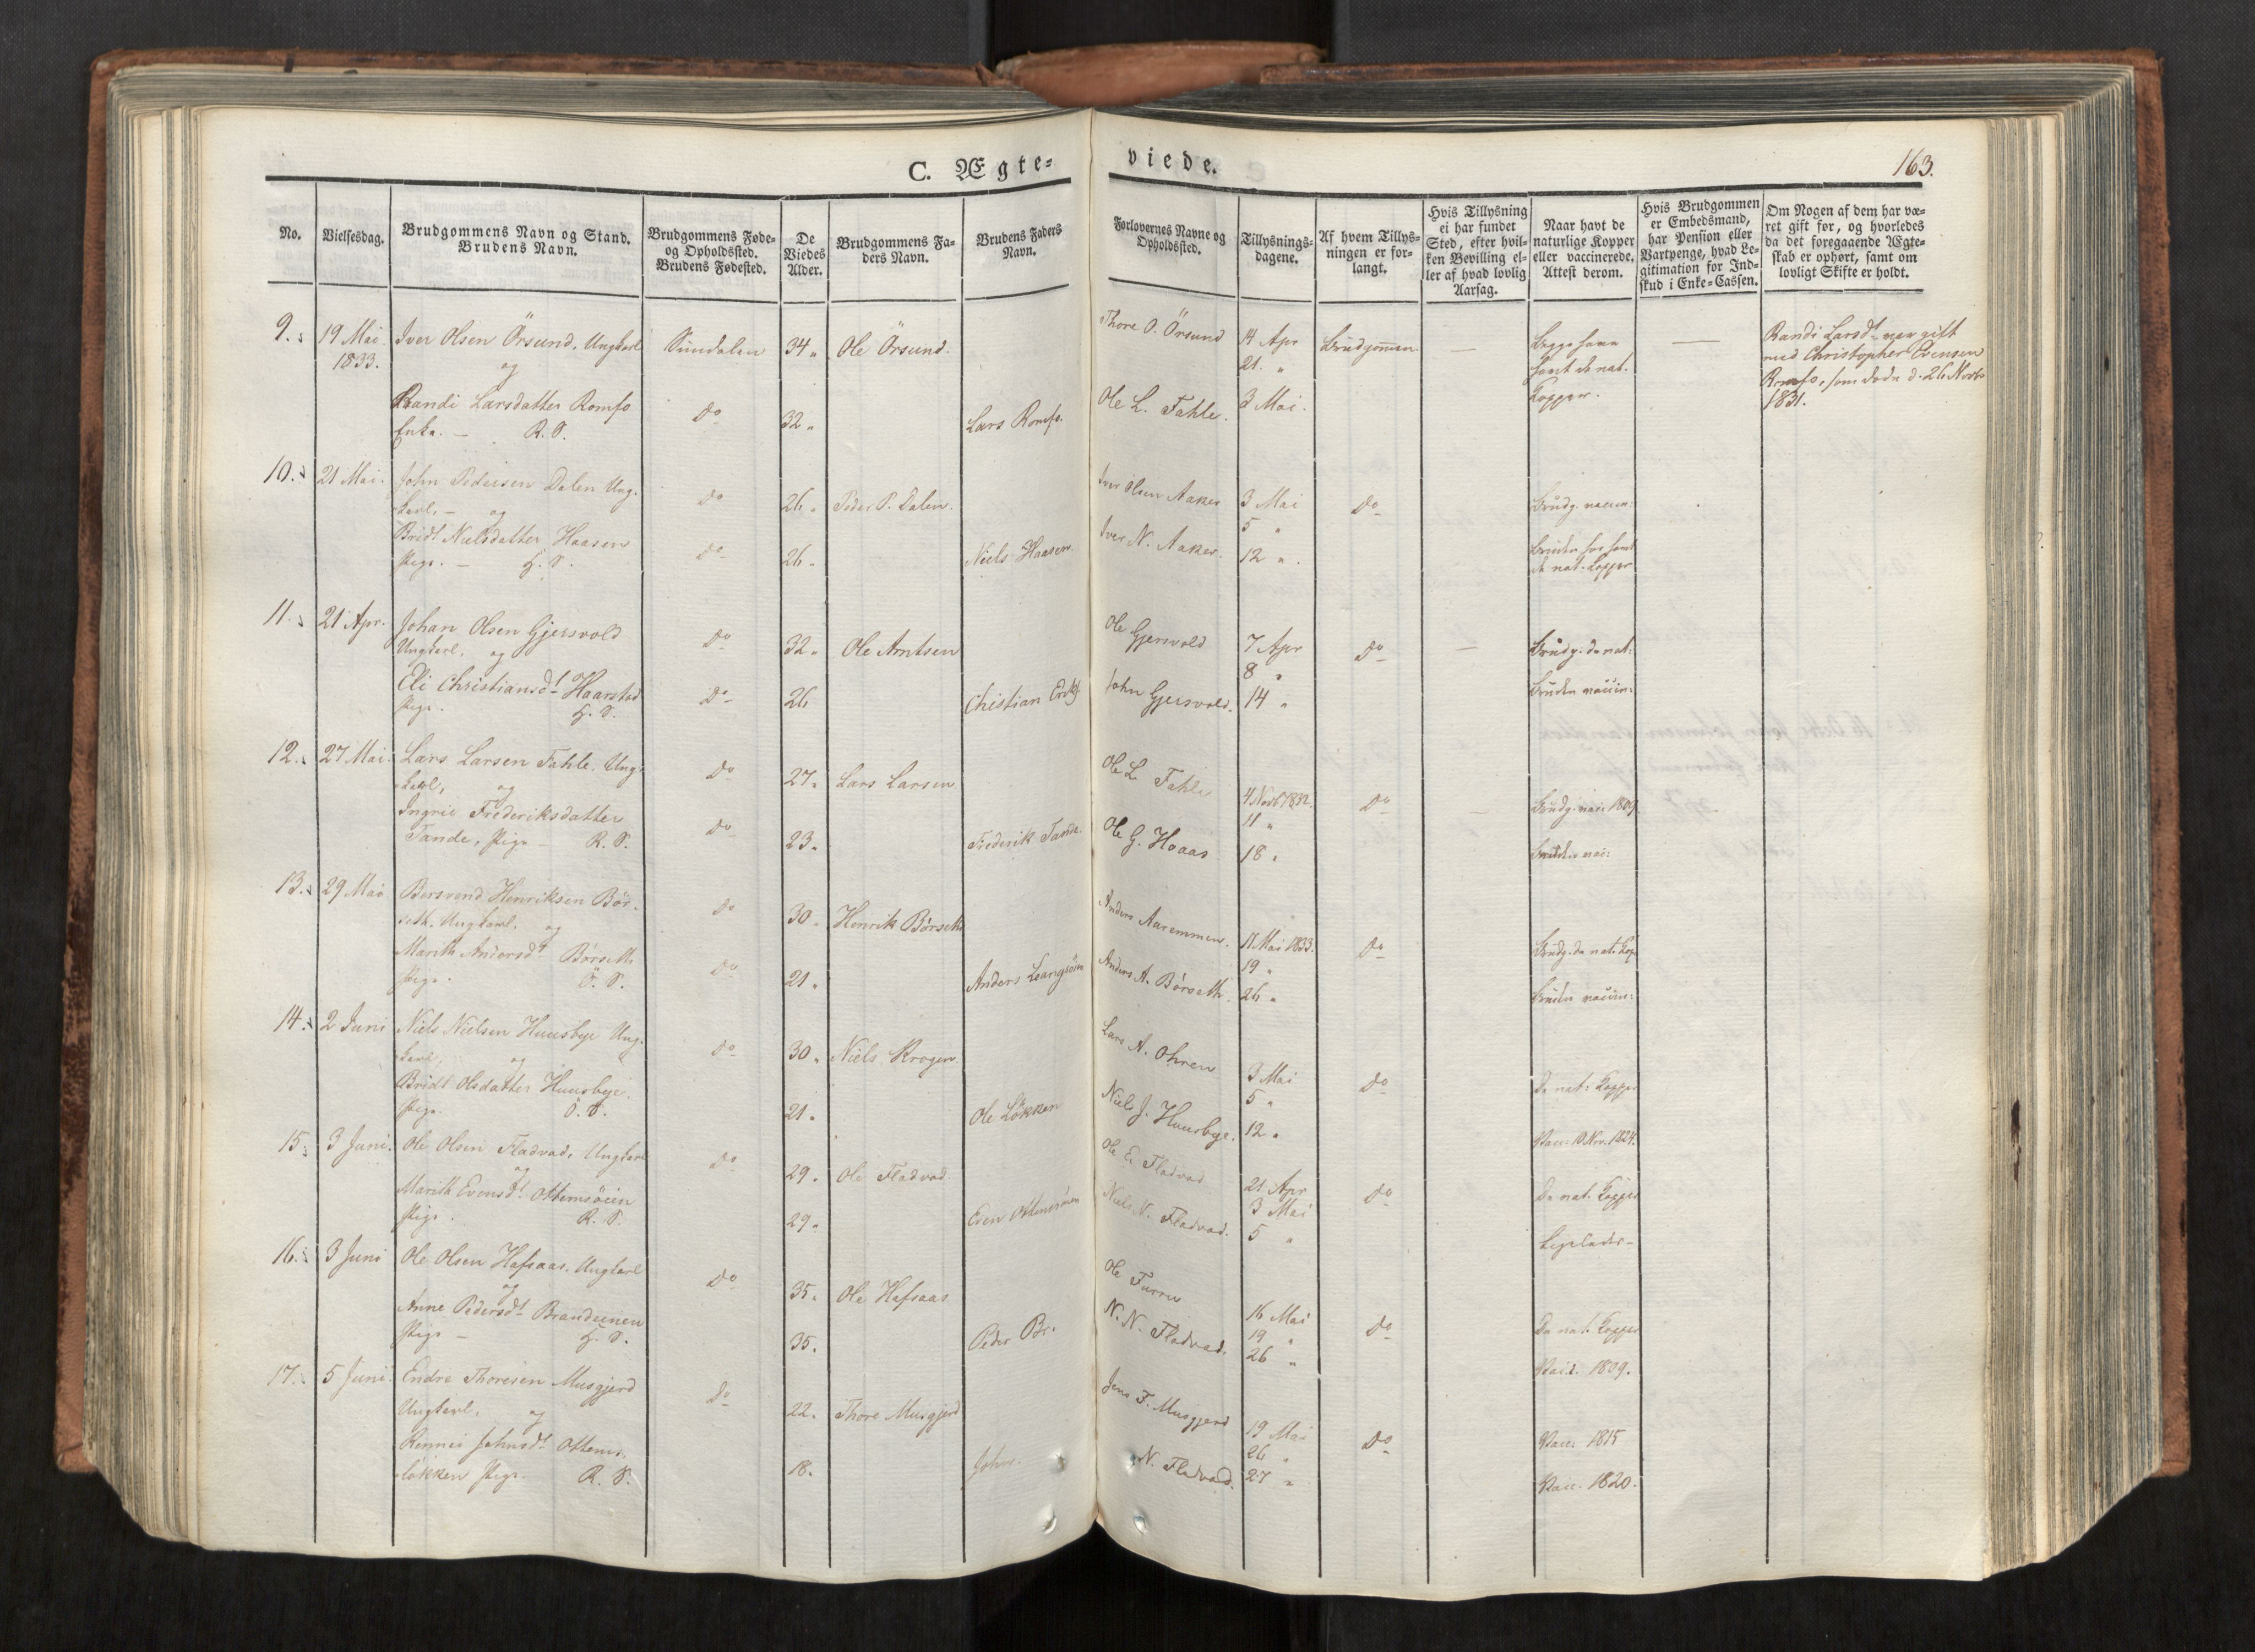 C. Ægte-
viede.
163.
No.
Vielsesdag.
Brudgommens Navn og Stand.
Brudens Navn.
Brudgommens Føde-
og Opholdssted.
Brudens Fødested.
De
Viedes
Alder.
Brudgommens Fa-
ders Navn.
Brudens Faders
Navn.
Forlovernes Navne og
Opholdssted.
Tillysnings-
dagene.
Af hvem Tillys-
ningen er for-
langt.
Hvis Tillysning
ei har fundet
Sted, efter hvil-
ken Bevilling el-
ler af hvad lovlig
Aarsag.
Naar havt de
naturlige Kopper
eller vaccinerede.
Attest derom.
Hvis Brudgommen
er Embedsmand,
har Pension eller
Vartpenge, hvad Le-
gitimation for Ind-
skud i Enke-Cassen.
Om Nogen af dem har væ-
ret gift før, og hvorledes
da det foregaaende Ægte-
skab er ophørt, samt om
lovligt Skifte er holdt.
9. 19 Mai. Iver Olsen Örsund, Ungkarl Sundalen 34 " Ole Örsund. Thore O. Örsund 14 Apr Brudgommen — Begge have — Randi Larsdt var gift
1833. og 21. " havt de nat. med Christopher Evensen
Randi Larsdatter Romfo do 32 " Lars Romfo. Ole L. Fahle. 3 Mai. Kopper. Romfo, som døde d. 26 Novbr
Enke. — R. S. 1831.
10. 21 Mai. John Pedersen Dalen Ung- do 26 " Peder P. Dalen. Iver Olsen Aaker 3 Mai do Brudg. vaccin:
karl, — og 5 "
Bridt Nielsdatter Haasen do 26 " Niels Haasen. Iver N. Aaker. 12 " Bruden har havt
Pige. — H. S. de nat. Kopper
11. 21 Apr. Johan Olsen Gjersvold do 32 " Ole Arntsen Ole Gjersvold 7 Apr do — Brudg. de nat:
Ungkarl, og 8 "
Eli Christiansdt Haarstad do 26 Christian John Gjersvold. 14 " Bruden vaccin:
Pige. H. S.
12. 27 Mai. Lars Larsen Fahle, Ung- do 27 " Lars Larsen Ole L. Fahle 4 Novb 1832. do — Brudg. vac: 1809.
karl, og 11 "
Ingrie Frederiksdatter do 23 " Frederik Tande. Ole G. Hoaas 18 " Bruden vac:
Tande, Pige — R. S.
13. 29 Mai Bersvend Henriksen Bör- do 30 " Henrik Börseth Anders Aaremmen. 17 Mai 1833. do Brudg. de nat: Kop
seth, Ungkarl, og 19 "
Marith Andersdt Börseth do 21 " Anders Anders A. Börseth. 26 " Bruden vaccin:
Pige. Ö. S.
14. 2 Juni Niels Nielsen Huusbye Ung- do 30 " Niels Krogen Lars A. Ohren 3 Mai do De nat: Kopper
karl, og 5 "
Bridt Olsdatter Huusbye. 21 " Ole Lökken Niels J. Huusbye. 12 " Vacc: 10 Nov. 1824.
Pige. Ö. S.
15. 3 Juni. Ole Olsen Fladvad, Ungkarl do 29 " Ole Fladvad. Ole E. Fladvad 21 Apr do De nat. Kopper
og 3 Mai
Marith Evensdt Ottemsöien 29 " Even Ottemsöien Niels N. Fladvad. 5 " Ligeledes —
Pige. R. S.
16. 3 Juni Ole Olsen Hafsaas, Ungkarl do 35 " Ole Hafsaas Ole Furru 16 Mai do De nat. Kopper
og 19 "
Anne Pedersdt Brandeenen 35 " Peder Br. N. N. Fladvad. 26 " Vacc. 1809.
Pige — H. S.
17. 5 Juni. Endre Thoresen Musgjerd do 22 " Thore Musgjerd Jens F. Musgjerd 19 Mai do Vacc. 1815
Ungkarl, og 26 "
Rennei Johnsdt Ottems- 18 " John. N. Fladvad. 27 " Vacc. 1820.
lökken Pige. R. S.